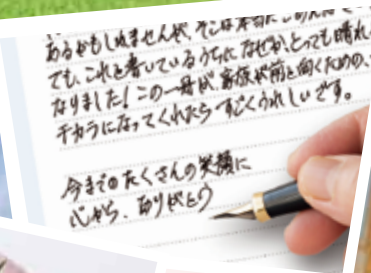 あるかもしれませんが、そこは本当にごめんなさ
でも、これを書いているうちになぜか、とっても晴れ
なりました！この一冊が、家族が前を向くための、
チカラになってくれたら すごくうれしいです。
今までのたくさんの笑顔に
心から、ありがとう